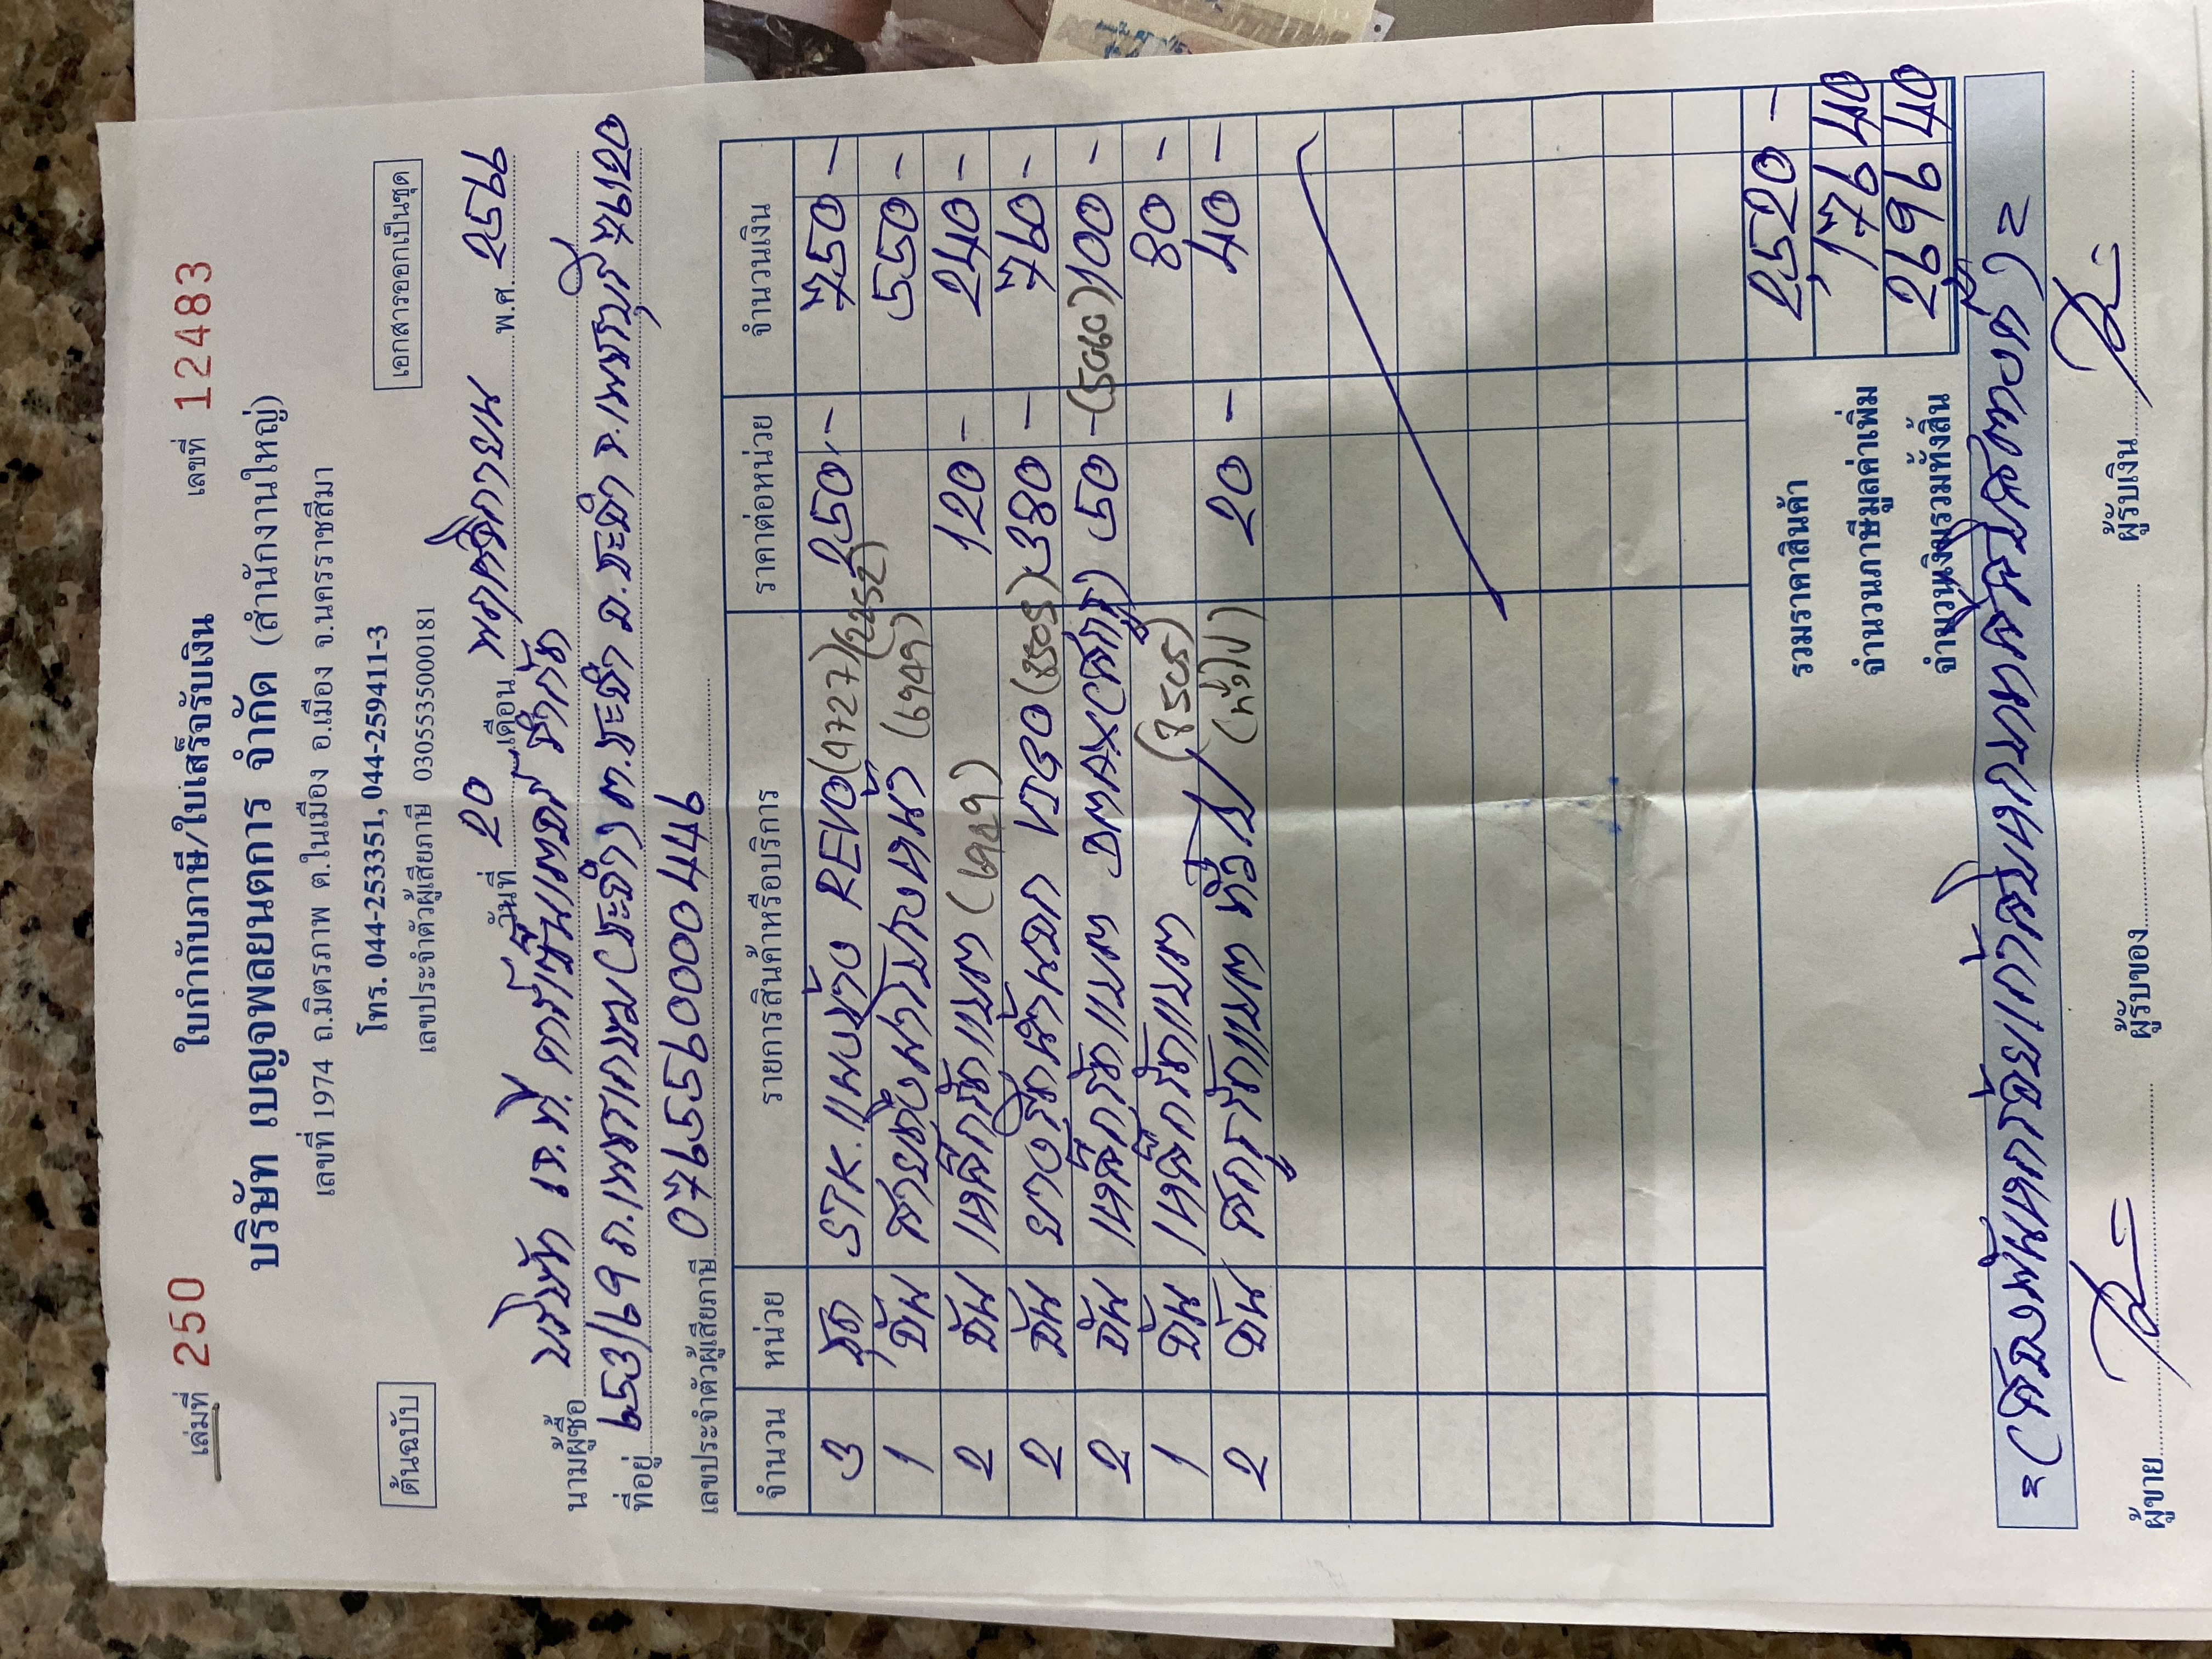 เล่มที่ 250 ใบกำกับภาษี/ใบเสร็จรับเงิน เลขที่ 12483
บริษัท เบญจพลยนตการ จำกัด (สำนักงานใหญ่)
เลขที่ 1974 ถ.มิตรภาพ ต.ในเมือง อ.เมือง จ.นครราชสีมา
โทร. 044-253351, 044-259411-3
ต้นฉบับ เลขประจำตัวผู้เสียภาษี 0305535000181 เอกสารออกเป็นชุด
วันที่ 20 เดือน พฤศจิกายน พ.ศ. 256
นามผู้ซื้อ บริษัท เจ.ที. จำกัด
ที่อยู่ ถ.เพชรเกษม ต.ชะอำ อ.ชะอำ จ.เพชรบุรี 76120
เลขประจำตัวผู้เสียภาษี
จำนวน หน่วย รายการสินค้าหรือบริการ ราคาต่อหน่วย จำนวนเงิน
3 ชุด STK. REVO (4727) (2252) 250 - 750 -
1 อัน (6949) 550 -
2 อัน เหล็กรัดแบต (6949) 120 - 240 -
2 อัน VIGO (8505) 380 - 760 -
2 อัน เหล็กรัดแบต DMAX 50 - (5060) 100 -
1 อัน เหล็กรัดแบต 80 -
2 อัน สกรูรัดแบต (ทั่วไป) 20 - 40 -
รวมราคาสินค้า 2,520 -
จำนวนภาษีมูลค่าเพิ่ม 176 40
จำนวนเงินรวมทั้งสิ้น 2696 40
=(สองพันหกร้อยเก้าสิบหกบาทสี่สิบสตางค์)=
ผู้ขาย ผู้รับของ ผู้รับเงิน